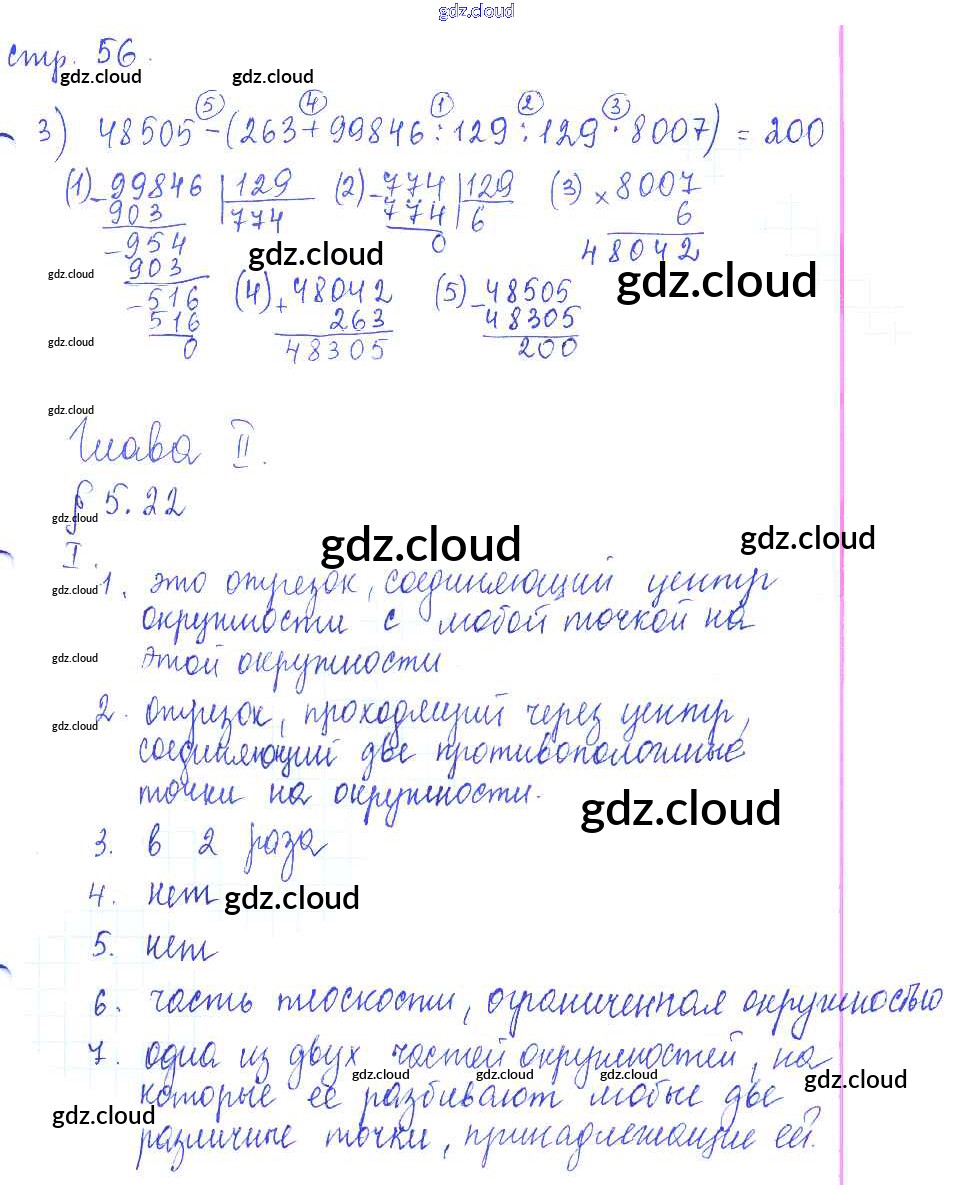 gdz.cloud
стр. 56.
gdz.cloud gdz.cloud
⑤ ④ ① ② ③
3) 48505 - (263 + 99846 : 129 : 129 · 8007) = 200
(1) - 99846 | 129 (2) - 774 | 129 (3) × 8007
903 774 774 6 6
- 954 0 48042
gdz.cloud gdz.cloud
903
gdz.cloud - 516 (4) + 48042 (5) - 48505
516 263 48305
gdz.cloud 0 48305 200
gdz.cloud
Глава II.
§ 5.22
gdz.cloud
gdz.cloud gdz.cloud
I.
gdz.cloud
1. это отрезок, соединяющий центр
окружности с любой точкой на
gdz.cloud
этой окружности
2. отрезок, проходящий через центр,
gdz.cloud
соединяющий две противоположные
точки на окружности.
gdz.cloud
3. в 2 раза
4. нет
gdz.cloud
5. нет
6. часть плоскости, ограниченная окружностью
7. одна из двух частей окружностей, на
gdz.cloud gdz.cloud gdz.cloud gdz.cloud
которые её разбивают любые две
gdz.cloud
различные точки, принадлежащие ей.